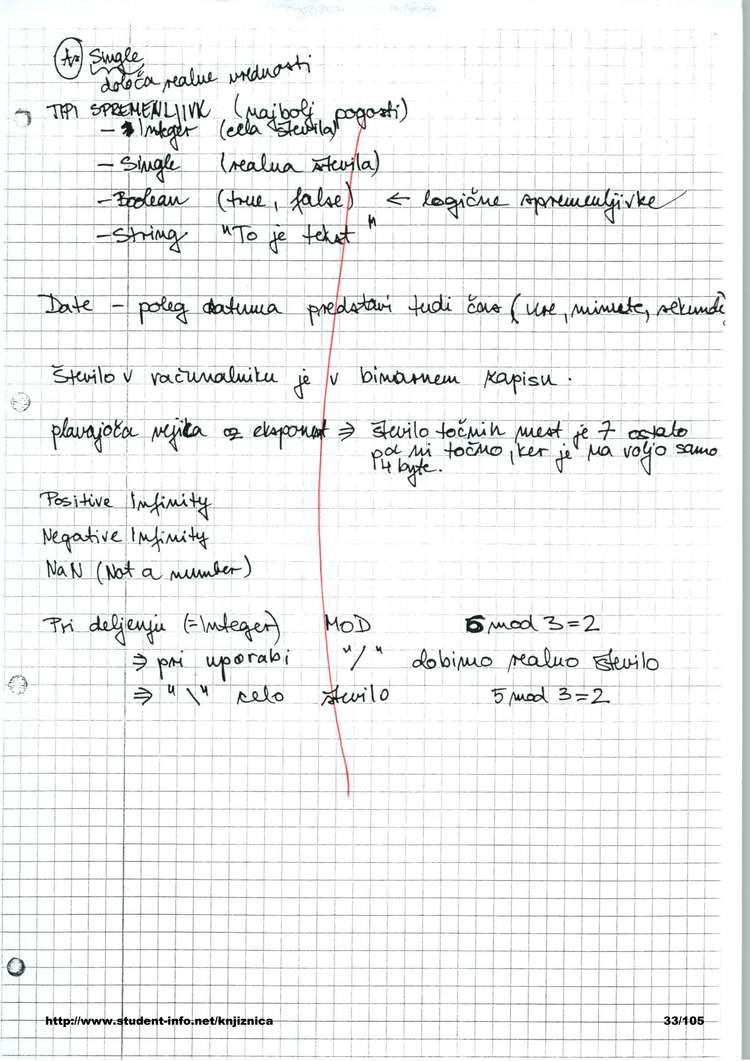 As Single
določa realne vrednosti
TIPI SPREMENLJIVK (najbolj pogosti)
- Integer (cela števila)
- Single (realna števila)
- Boolean (true, false) ← logične spremenljivke
- String "To je tekst"
Date - poleg datuma predstavi tudi čas (ure, minute, sekunde
Število v računalniku je v binarnem zapisu.
plavajoča vejica oz eksponent ⇒ število točnih mest je 7 ostalo
pa ni točno, ker je na voljo samo
4 byte.
Positive Infinity
Negative Infinity
NaN (Not a number)
Pri deljenju (=Integer) MOD 5 mod 3=2
⇒ pri uporabi "/" dobimo realno število
⇒ "\" celo število 5 mod 3=2
http://www.student-info.net/knjiznica 33/105